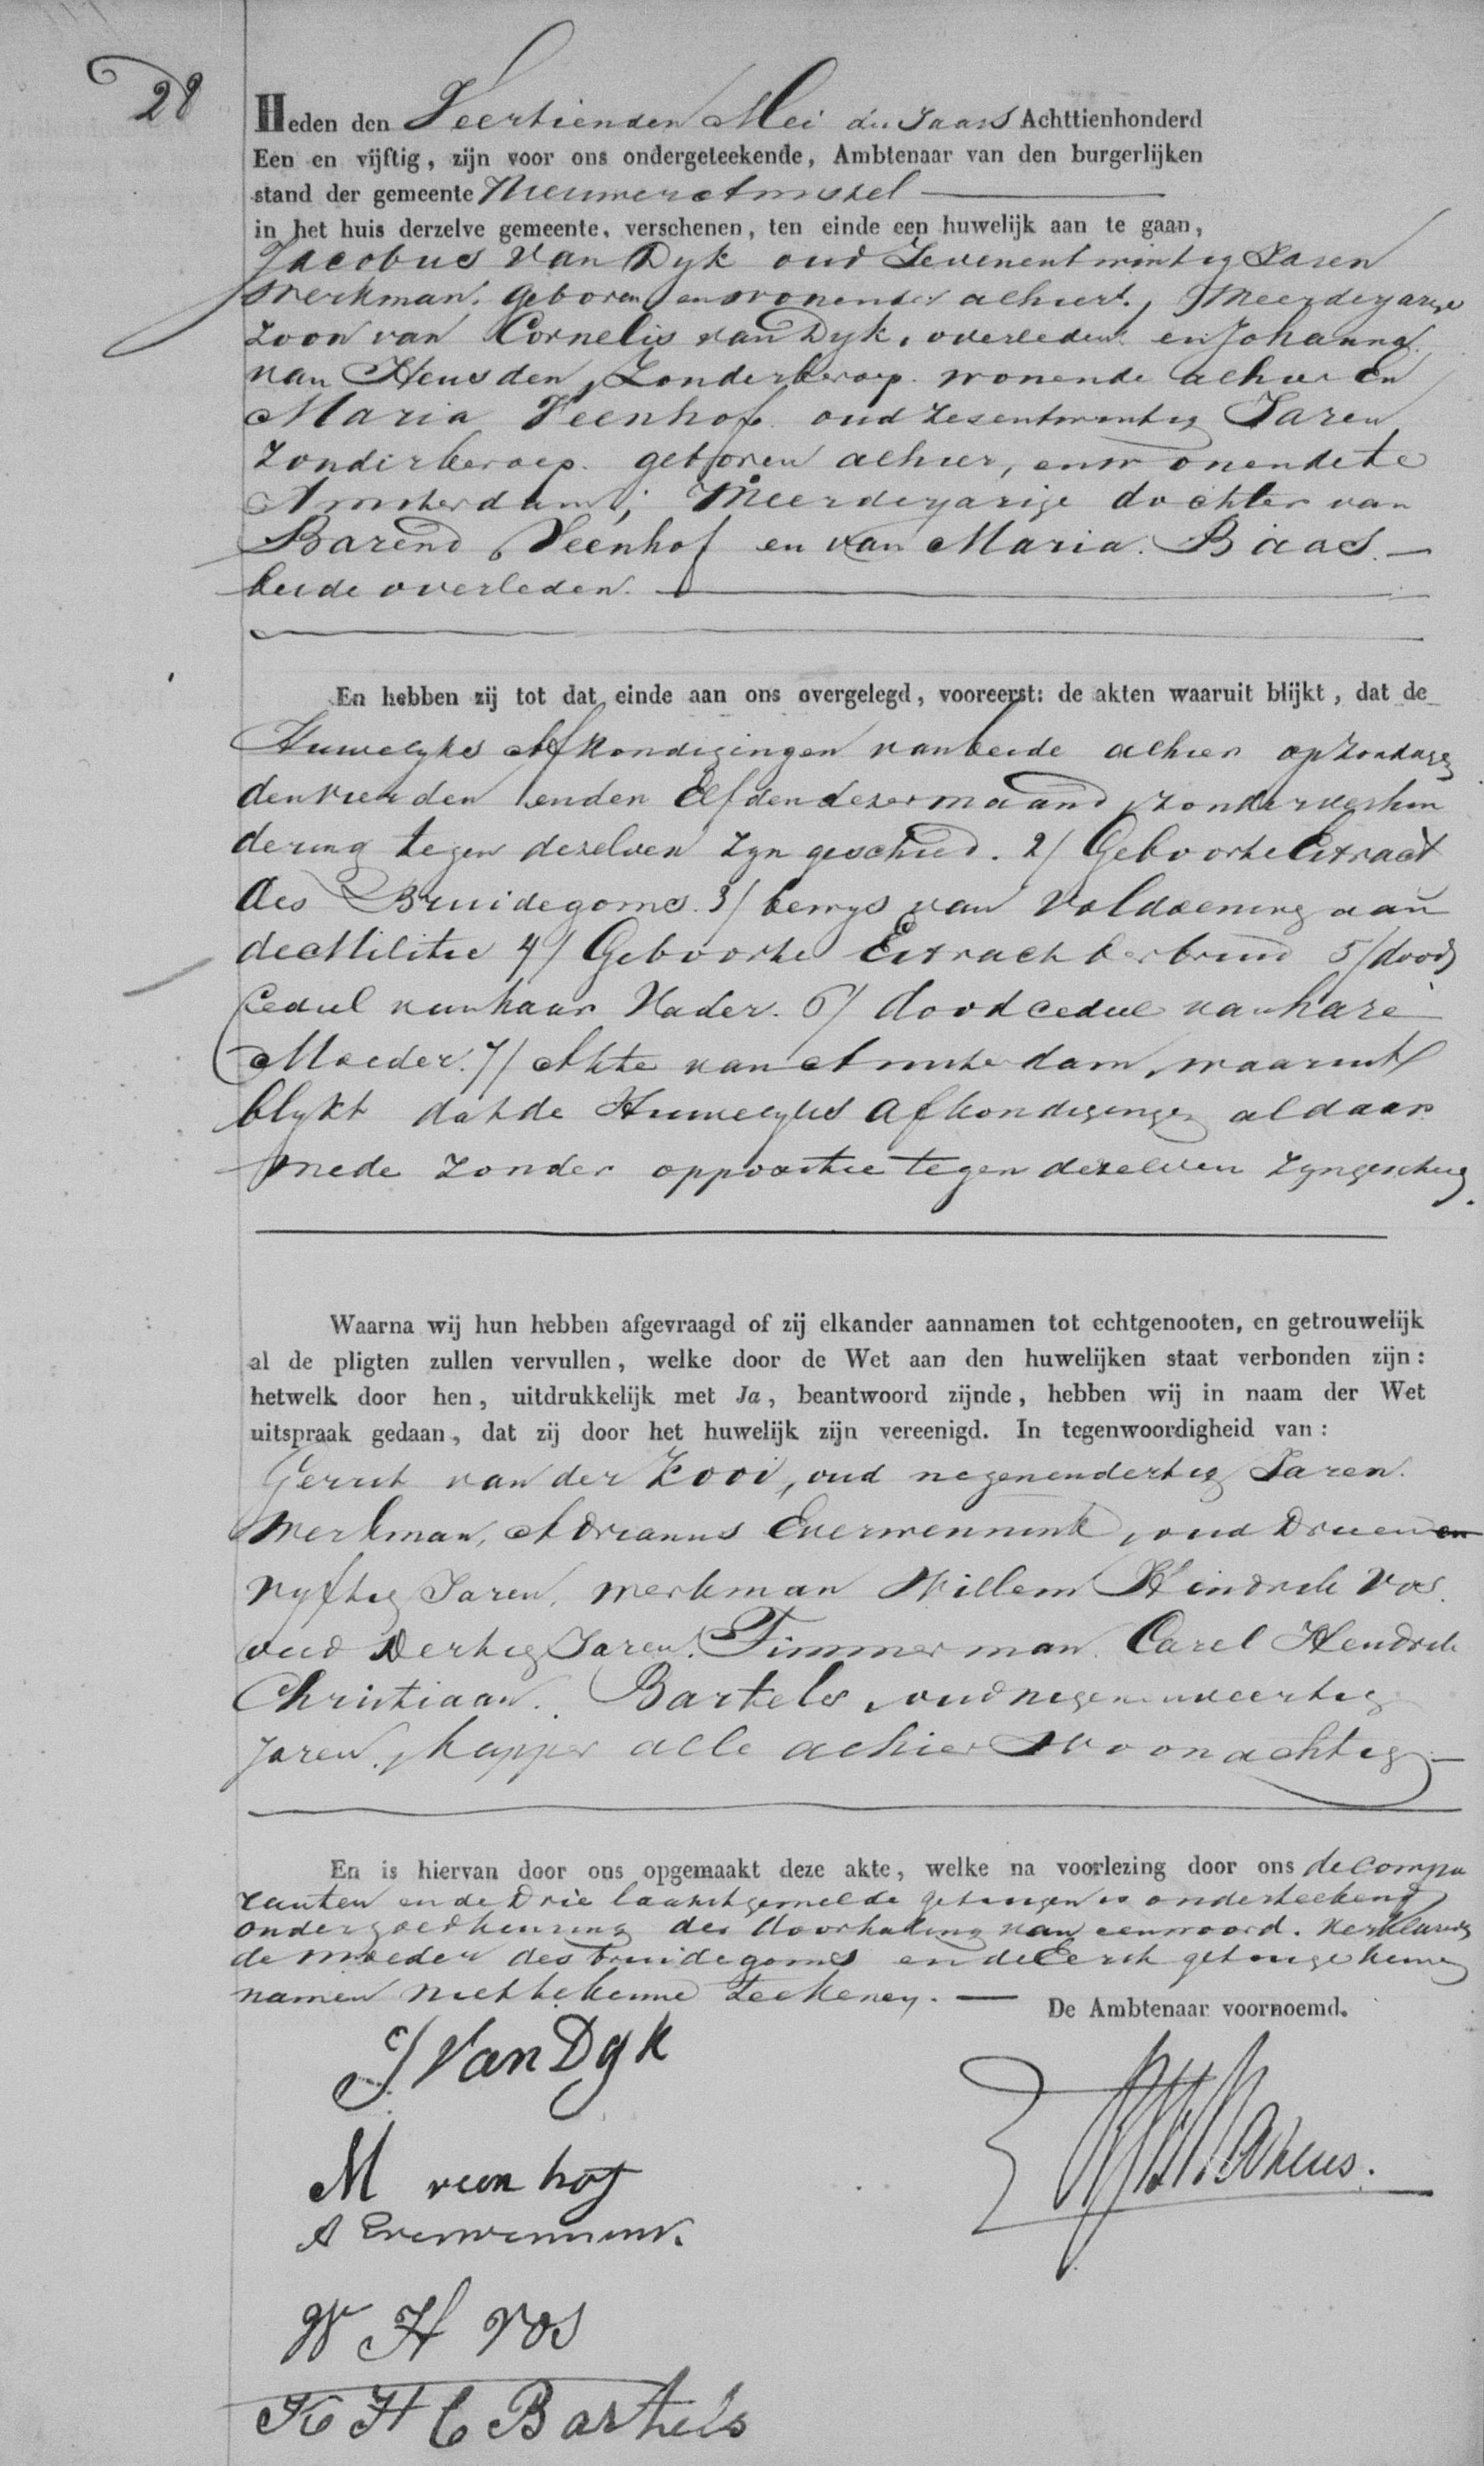 28
Heden den Veertienden Mei des Jaars Achttienhonderd
Een en vijftig, zijn voor ons ondergeteekende, Ambtenaar van den burgerlijken
stand der gemeente Nieuweramstel
in het huis derzelve gemeente, verschenen, ten einde een huwelijk aan te gaan,
Jacobus van Dyk oud Zevenentwintig Jaren
Werkman, geboren en wonende alhier, Meerderjarige
zoon van Cornelis van Dyk, overleden en Johanna
van Heusden, Zonder beroep wonende alhier En
Maria Veenhof oud zesentwintig Jaren
Zonder beroep geboren alhier, en wonende te
Amsterdam; Meerderjarige dochter van
Barend Veenhof en van Maria Baas.
beide overleden.
En hebben zij tot dat einde aan ons overgelegd, vooreerst: de akten waaruit blijkt, dat de
Huwelyks Afkondigingen van beide alhier op Zondag
den vierden en den Elfden dezer maand, zonder verhin
dering tegen dezelven zyn geschied. 2/ Geboorte Extract
des Bruidegoms. 3/ bewys van Voldoening aan
de Militie 4/ Geboorte Extract der bruid 5/ dood
Cedul van haar Vader. 6/ doodcedul van hare
Moeder. 7/ Akte van Amsterdam, waaruit
blykt dat de Huwelyks Afkondigingen aldaar
mede zonder oppositie tegen dezelven zyn geschied.
Waarna wij hun hebben afgevraagd of zij elkander aannamen tot echtgenooten, en getrouwelijk
al de pligten zullen vervullen, welke door de Wet aan den huwelijken staat verbonden zijn:
hetwelk door hen, uitdrukkelijk met Ja, beantwoord zijnde, hebben wij in naam der Wet
uitspraak gedaan, dat zij door het huwelijk zijn vereenigd. In tegenwoordigheid van:
Gerrit van der Kooi, oud negenendertig Jaren.
Werkman, Adrianus Everwennink, oud Drieen en
vyftig Jaren, werkman Willem Hendrik Vos
oud Dertig Jaren. Timmerman. Carel Hendrik
Christiaan Bartels, oud negenenveertig
Jaren, kapper alle alhier Woonachtig
En is hiervan door ons opgemaakt deze akte, welke na voorlezing door ons de Compa
ranten en de Drie laatstgemelde getuigen is onderteekend
onder goedkeuring der doorhaling van een woord. Verklarende
de moeder des bruidegoms en de Eerste getuige hunne
namen niet te kunne teekenen. De Ambtenaar voornoemd.
J Van Dyk
M veen hof
A Everwennink.
W H Vos
K H C Bartels